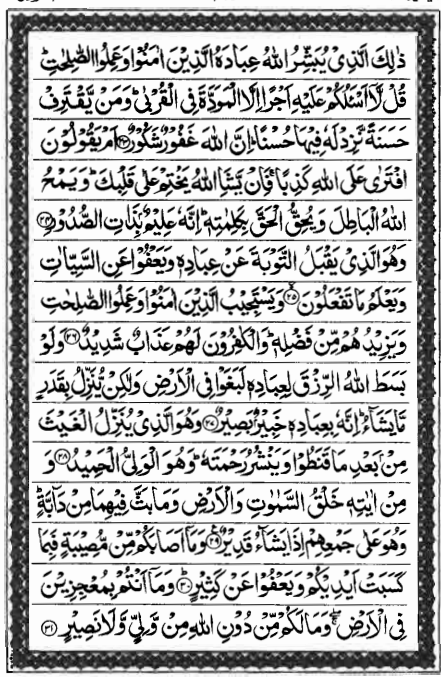 ذٰلِكَ الَّذِىْ يُبَشِّرُ اللّٰهُ عِبَادَهُ الَّذِيْنَ اٰمَنُوْا وَعَمِلُوا الصّٰلِحٰتِ ؕ
قُلْ لَّاۤ اَسْئَلُكُمْ عَلَيْهِ اَجْرًا اِلَّا الْمَوَدَّةَ فِى الْقُرْبٰى ؕ وَمَنْ يَّقْتَرِفْ
حَسَنَةً نَّزِدْ لَهٗ فِيْهَا حُسْنًا ؕ اِنَّ اللّٰهَ غَفُوْرٌ شَكُوْرٌ ﴿۲۳﴾ اَمْ يَقُوْلُوْنَ
افْتَرٰى عَلَى اللّٰهِ كَذِبًا ۚ فَاِنْ يَّشَاِ اللّٰهُ يَخْتِمْ عَلٰى قَلْبِكَ ؕ وَيَمْحُ
اللّٰهُ الْبَاطِلَ وَيُحِقُّ الْحَقَّ بِكَلِمٰتِهٖ ؕ اِنَّهٗ عَلِيْمٌۢ بِذَاتِ الصُّدُوْرِ ﴿۲۴﴾
وَهُوَ الَّذِىْ يَقْبَلُ التَّوْبَةَ عَنْ عِبَادِهٖ وَيَعْفُوْا عَنِ السَّيِّاٰتِ
وَيَعْلَمُ مَا تَفْعَلُوْنَ ﴿۲۵﴾ وَيَسْتَجِيْبُ الَّذِيْنَ اٰمَنُوْا وَعَمِلُوا الصّٰلِحٰتِ
وَيَزِيْدُهُمْ مِّنْ فَضْلِهٖ ؕ وَالْكٰفِرُوْنَ لَهُمْ عَذَابٌ شَدِيْدٌ ﴿۲۶﴾ وَلَوْ
بَسَطَ اللّٰهُ الرِّزْقَ لِعِبَادِهٖ لَبَغَوْا فِى الْاَرْضِ وَلٰكِنْ يُّنَزِّلُ بِقَدَرٍ
مَّا يَشَآءُ ؕ اِنَّهٗ بِعِبَادِهٖ خَبِيْرٌۢ بَصِيْرٌ ﴿۲۷﴾ وَهُوَ الَّذِىْ يُنَزِّلُ الْغَيْثَ
مِنْۢ بَعْدِ مَا قَنَطُوْا وَيَنْشُرُ رَحْمَتَهٗ ؕ وَهُوَ الْوَلِىُّ الْحَمِيْدُ ﴿۲۸﴾ وَ
مِنْ اٰيٰتِهٖ خَلْقُ السَّمٰوٰتِ وَالْاَرْضِ وَمَا بَثَّ فِيْهِمَا مِنْ دَآبَّةٍ ؕ
وَهُوَ عَلٰى جَمْعِهِمْ اِذَا يَشَآءُ قَدِيْرٌ ﴿۲۹﴾ وَمَاۤ اَصَابَكُمْ مِّنْ مُّصِيْبَةٍ فَبِمَا
كَسَبَتْ اَيْدِيْكُمْ وَيَعْفُوْا عَنْ كَثِيْرٍ ﴿۳۰﴾ وَمَاۤ اَنْتُمْ بِمُعْجِزِيْنَ
فِى الْاَرْضِ ۖۚ وَمَا لَكُمْ مِّنْ دُوْنِ اللّٰهِ مِنْ وَّلِىٍّ وَّلَا نَصِيْرٍ ﴿۳۱﴾